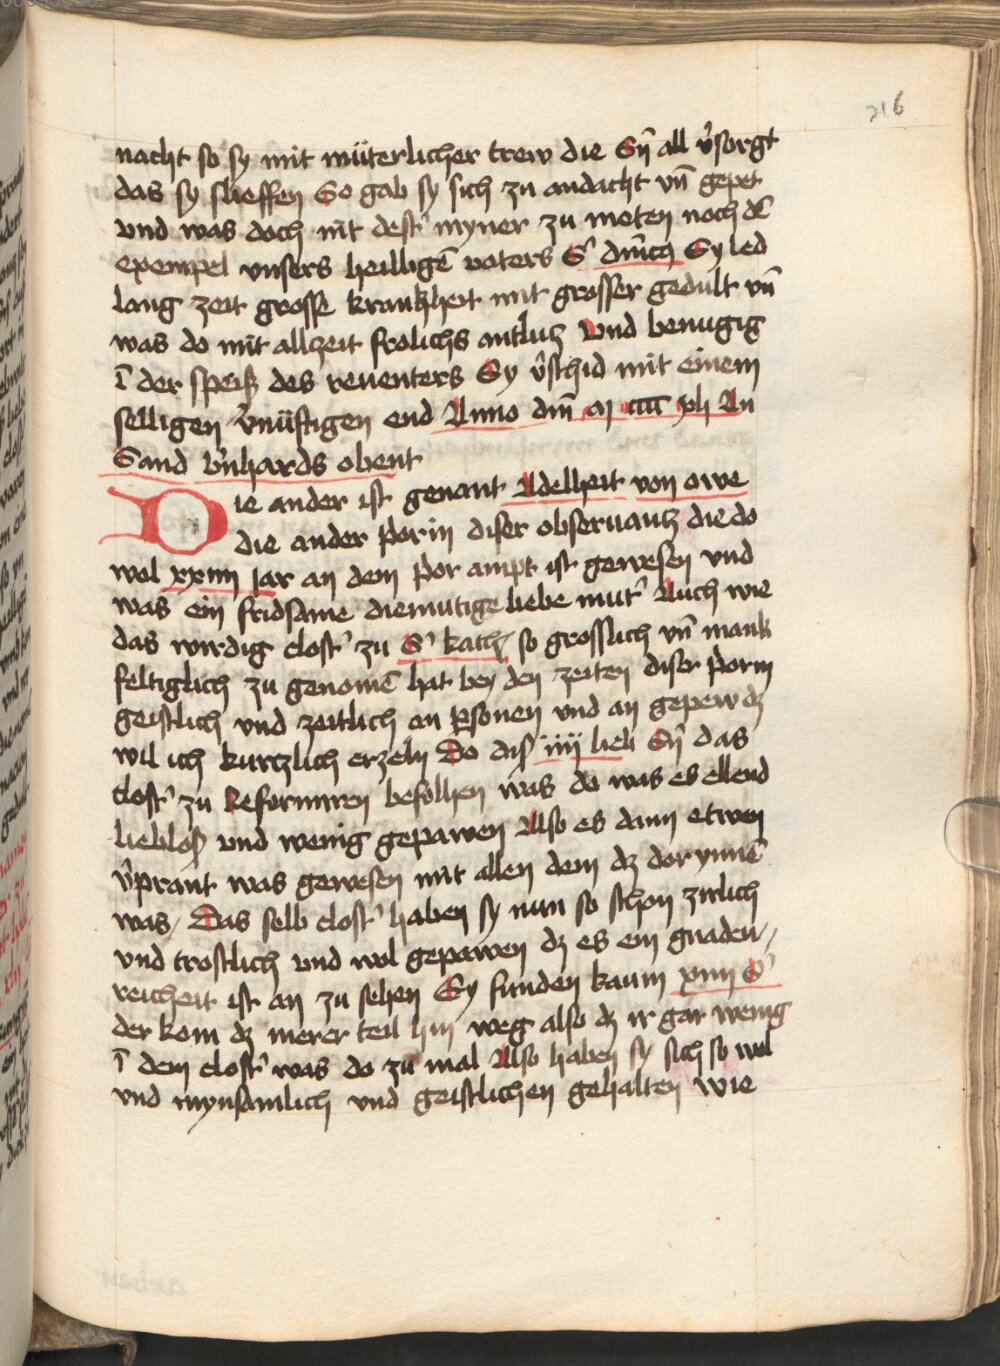 216
nacht so sy mit müterlicher trew die Sv̄ all v̉sorgt
das sy slieffen So gab sy sich zu andacht vn̄ gepet
vnd was doch nit dest᾿ myner zu meten noch dē
exempel vnsers heilligē vaters S᾿ dm̄icꝫ Sy led
lang zeit grosse krankheit mit grosser gedult vn̄
was do mit allzeit frolichs antlutz Vnd benugig
ī der speiß des reuenters Sy v̉schid mit einem
selligen v̉nüftigen end Anno dm̄ m cccc xlj An
Sand b᾿nhards obent
Die ander ist genant Adelheit von awe
die ander Porin diser obseruantz die do
wol xxiiij Jar an dem por ampt ist gewesen vnd
was ein fridsame diemutige liebe mut᾿ Auch wie
das wirdig clost᾿ zu S᾿ kath so grosslich vn̄ mank
feltiglich zu genomē hat bey den zeiten diser Porin
geistlich vnd zeitlich an ꝑsonen vnd an gepew dz
wil ich kurtzlich erzeln Do diß iiij lieb Sv̄ das
clost᾿ zu Reformiren befolhen was da was es ellend
lieblos vnd wenig gepawen Also es dann etwen
v̉prant was gewesen mit allen dem dz dor ynnē
was / Das selb clost᾿ haben sy nun so schon zirlich
vnd trostlich vnd wol gepawen dz es ein gnaden /
reicheit ist an zu sehen Sy funden kaum xiiij S᾿
der kom dz merer teil hin weg also dz ir gar wenig
ī dem clost᾿ was do zu mal Also haben sy sich so wol
vnd mynsamlich vnd geistlichen gehalten wie